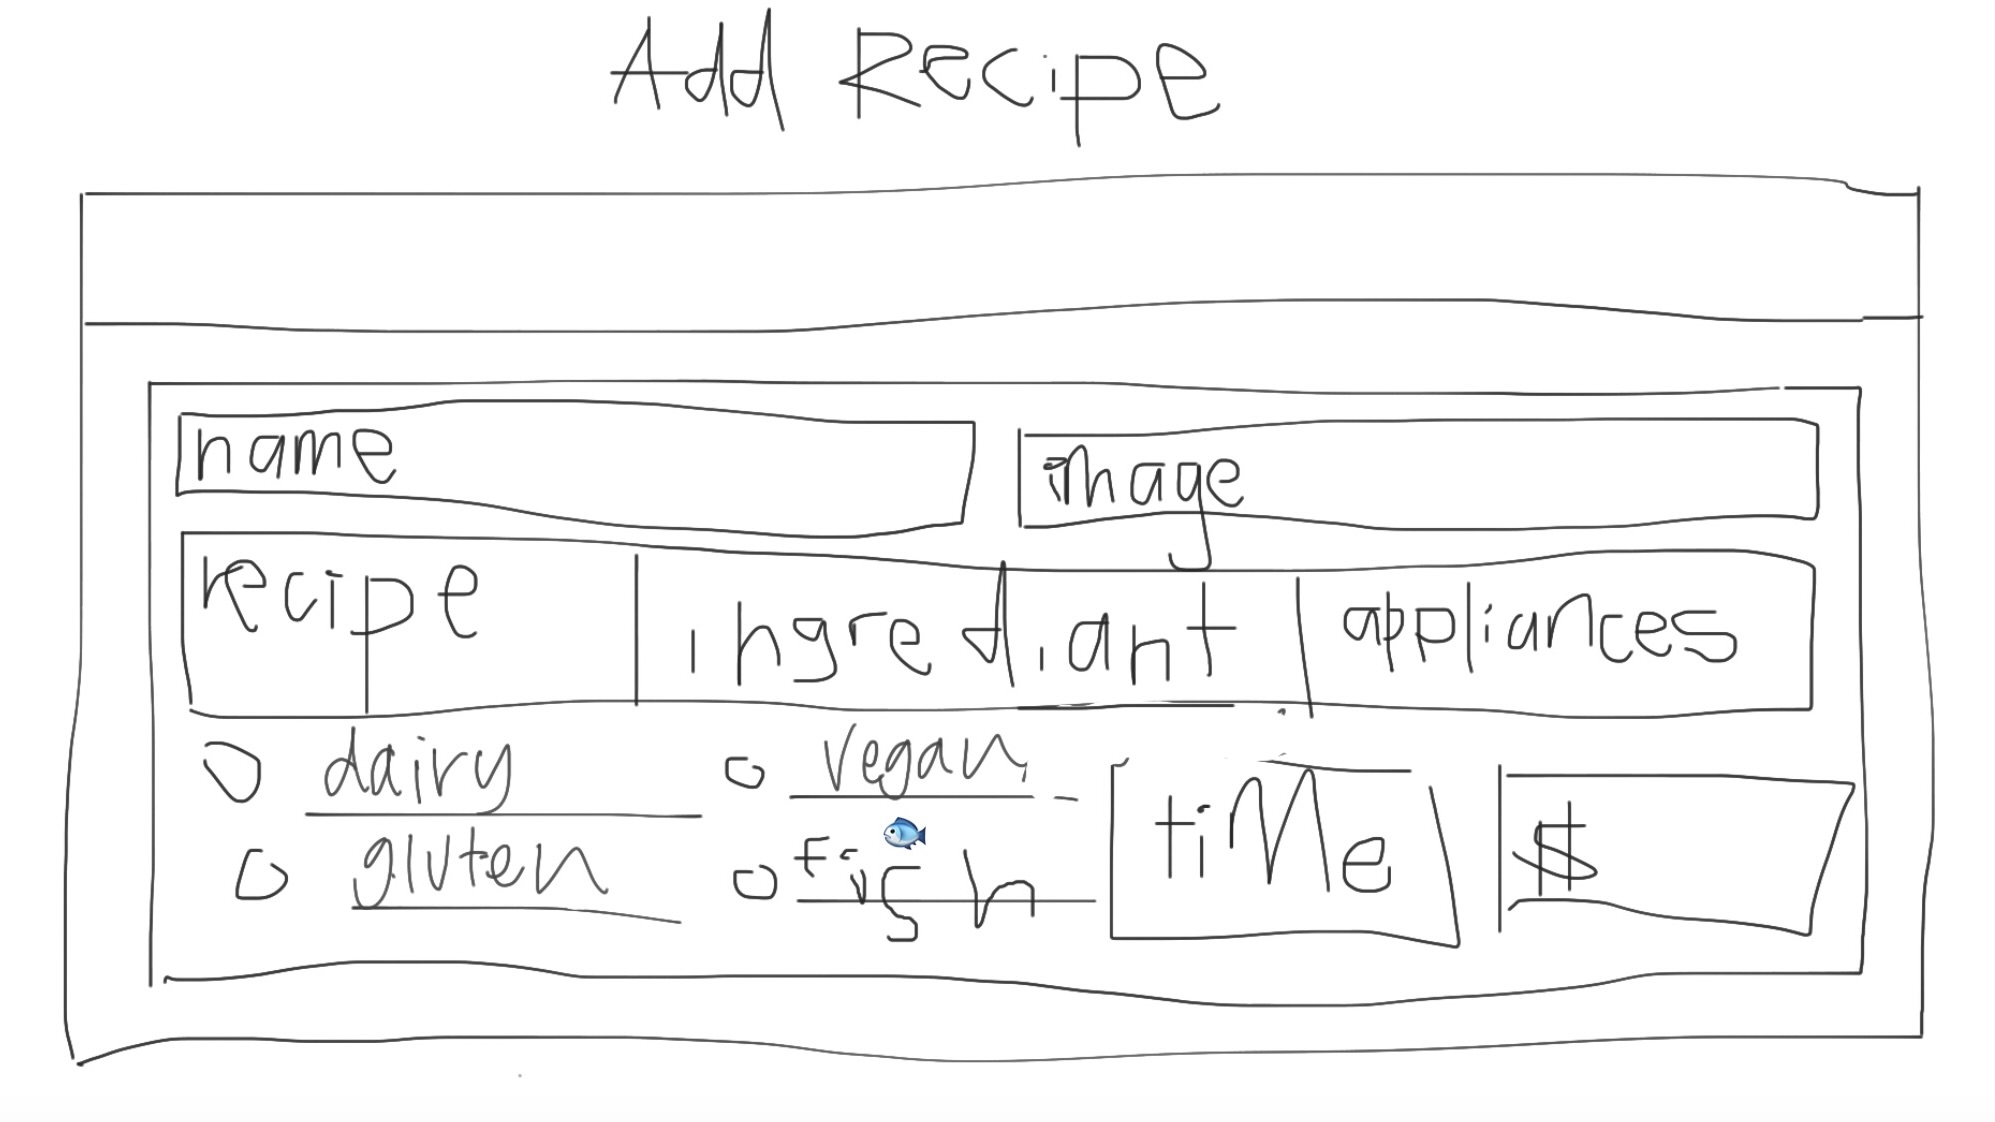 Add Recipe
name image
recipe ingrediant appliances
dairy vegan
gluten fish
time $